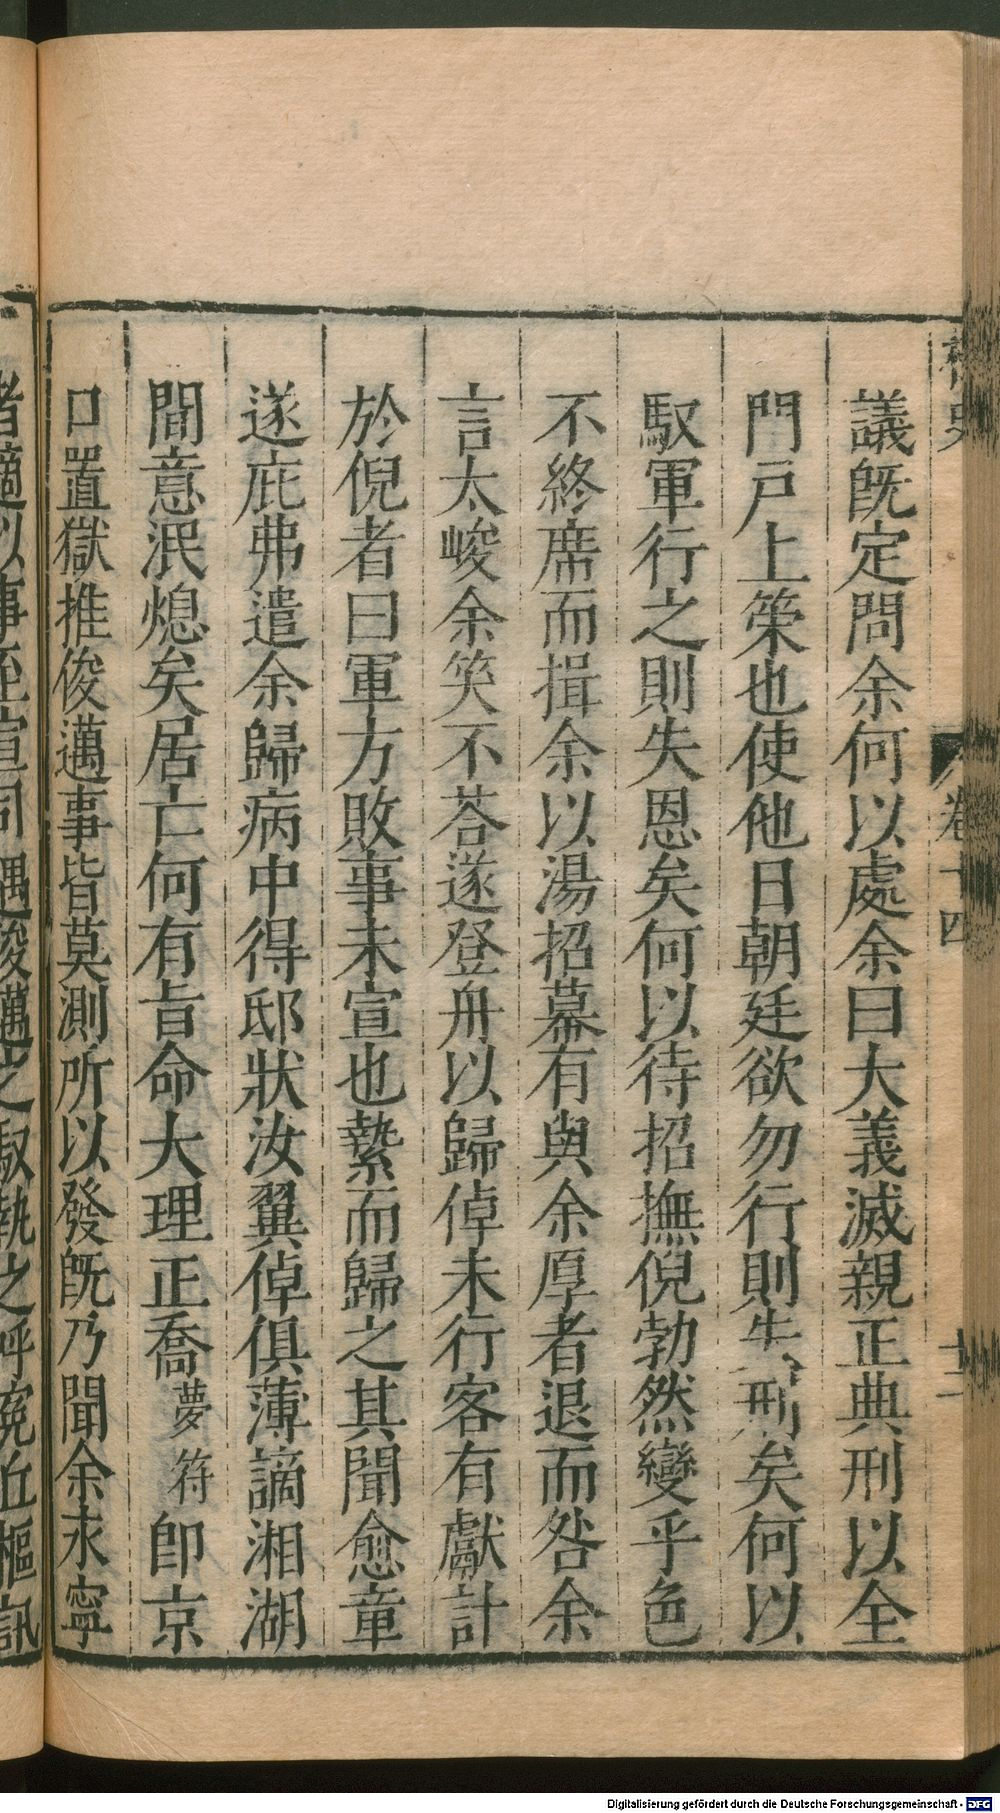 議旣定問余何以處余曰大義滅親正典刑以全
門戸上策也使他日朝廷欲勿行則失刑矣何以
馭軍行之則失恩矣何以待招撫倪勃然變乎色
不終席而揖余以湯招幕有與余厚者退而咎余
言太峻余笑不荅遂登舟以歸倬未行客有獻計
於倪者曰軍方敗事未宣也縶而歸之其聞愈童
遂庇弗遣余歸病中得邸狀汝翼倬俱薄謫湘湖
間意泯熄矣居亡何有旨命大理正喬夢符卽京
口置獄推俊邁事皆莫測所以發旣乃聞余永寧
卷十四
十二
Digitalisierung gefördert durch die Deutsche Forschungsgemeinschaft - DFG